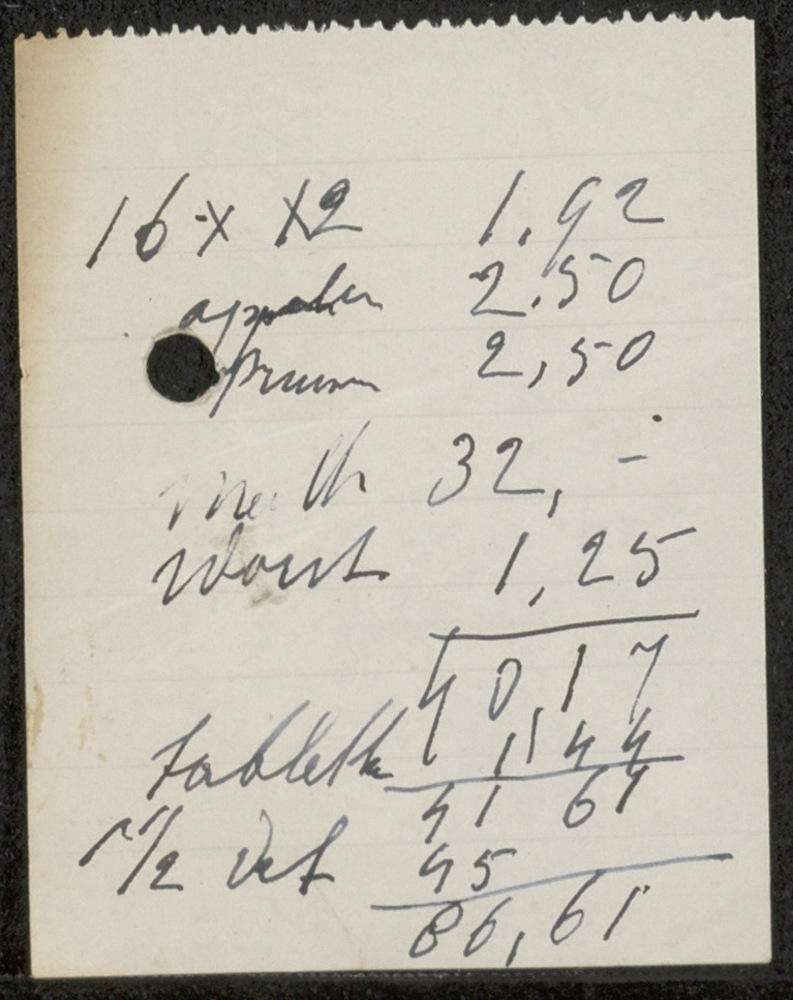 16 x 12 1.92
appelen 2.50
pruimen 2,50
melk 32, -
worst 1,25
40,17
tablette 1,44
41 61
1/2 vet 45
86,61